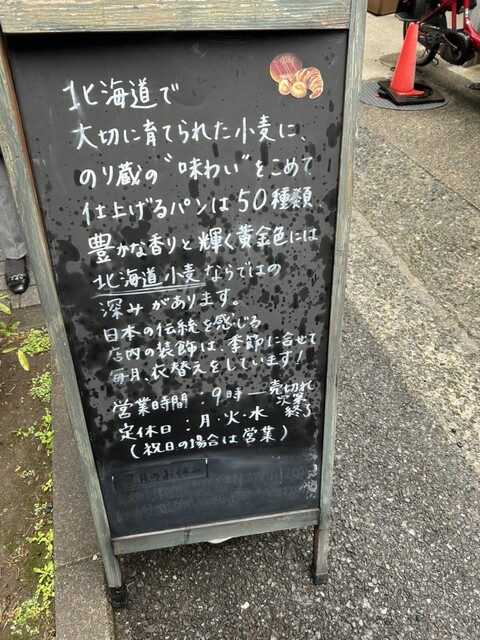 北海道で
大切に育てられた小麦に、
のり蔵の"味わい"をこめて
仕上げるパンは50種類
豊かな香りと輝く黄金色には
北海道小麦ならではの
深みがあります。
日本の伝統を感じる
店内の装飾は、季節に合せて
毎月、衣替えをしています!
営業時間:9時—売切れ次第終了
定休日:月・火・水
(祝日の場合は営業)